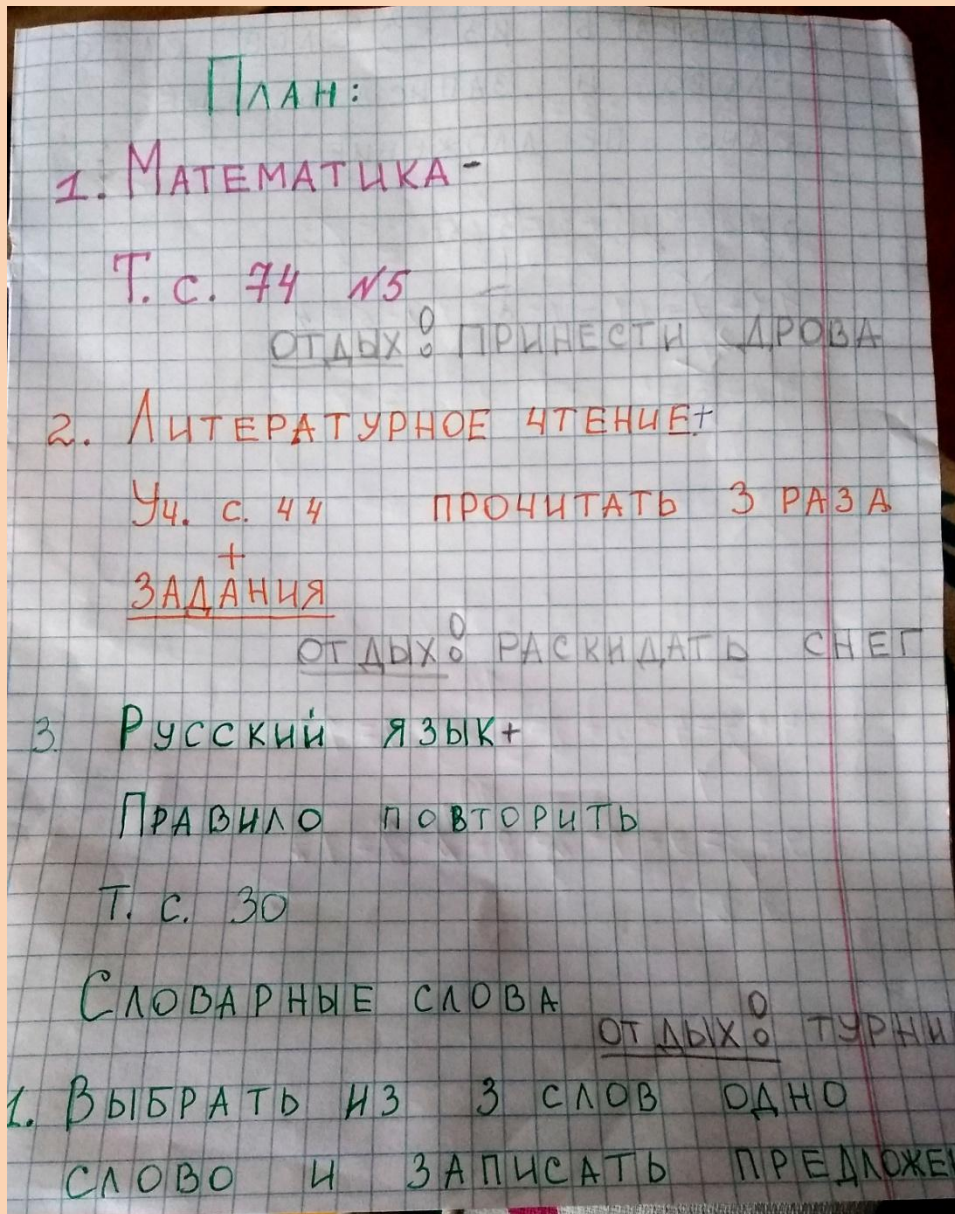 План:
1. Математика -
Т. с. 74 №5
отдых: принести дрова
2. Литературное чтение +
Уч. с. 44 прочитать 3 раза
+
задания
отдых: раскидать снег
3. Русский язык +
Правило повторить
Т. с. 30
Словарные слова
отдых: турни
1. Выбрать из 3 слов одно
слово и записать предложе